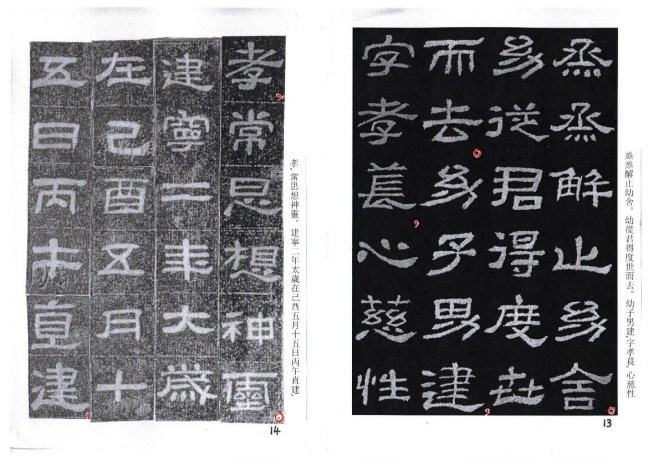 烝烝解止幼舍。幼從君得度世而去。幼子男建,字孝萇,心慈性
烝烝解止幼舍
幼從君得度世
而去幼子男建
字孝萇心慈性
13
孝,常思想神靈。建寧二年太歲在己酉五月十五日丙午直建,
孝常思想神靈
建寧二年大歲
在己酉五月十
五日丙午直建
14